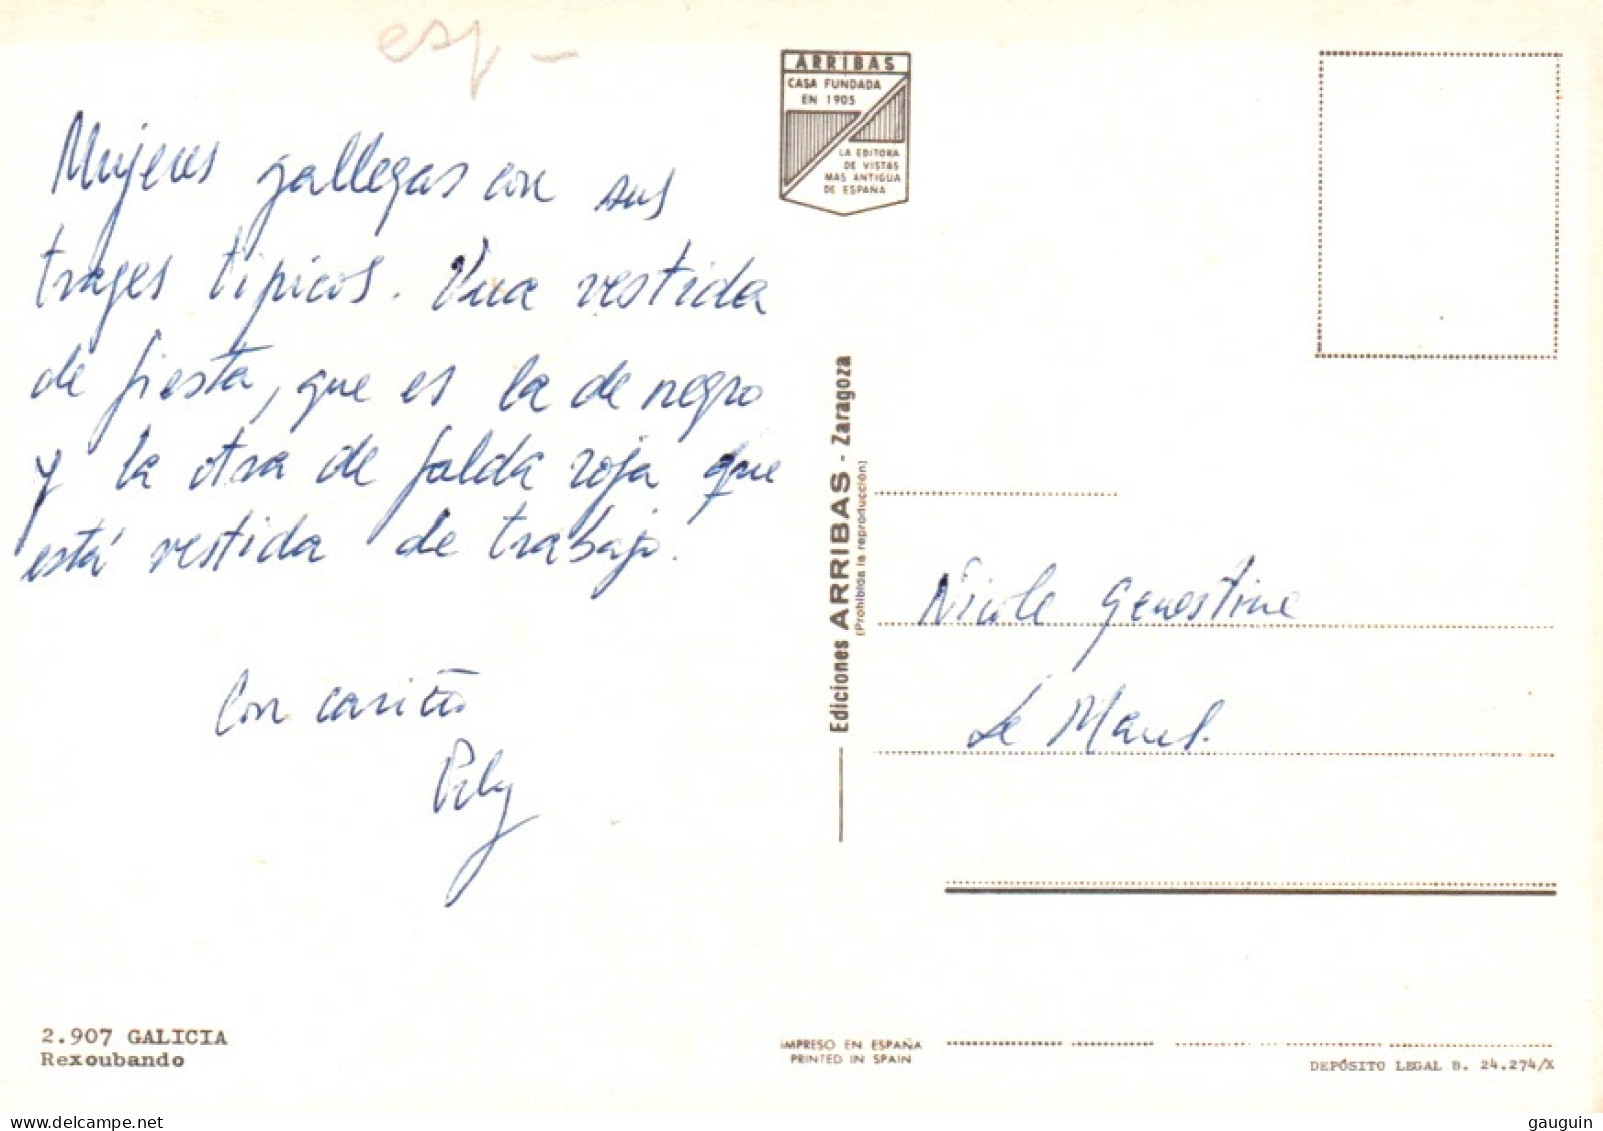 esp -
Mujeres gallegas con sus
trages típicos. Una vestida
de fiesta, que es la de negro
y la otra de falda roja que
está vestida de trabajo.
Con cariño
2.907 GALICIA
Rexoubando
ARRIBAS
CASA FUNDADA
EN 1905
LA EDITORA
DE VISTAS
MAS ANTIGUA
DE ESPAÑA
Ediciones ARRIBAS - Zaragoza
(Prohibida la reproducción)
IMPRESO EN ESPAÑA
PRINTED IN SPAIN
Nicole Genestine
Le Mans.
DEPÓSITO LEGAL B. 24.274/X
gauguin